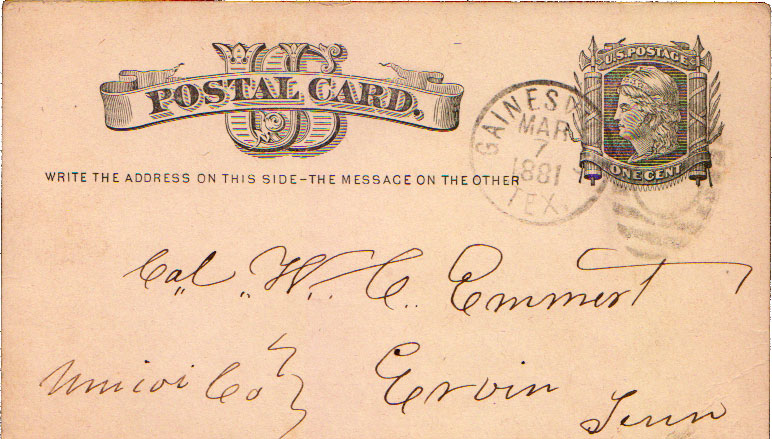 US
POSTAL CARD.
U.S. POSTAGE
ONE CENT
WRITE THE ADDRESS ON THIS SIDE-THE MESSAGE ON THE OTHER
GAINES
MAR
7
1881
TEX.
Col. W. C. Emmert
Unicoi Co Ervin
Tenn